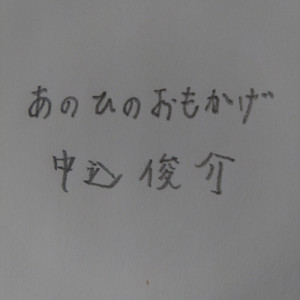 あのひのおもかげ
中込俊介